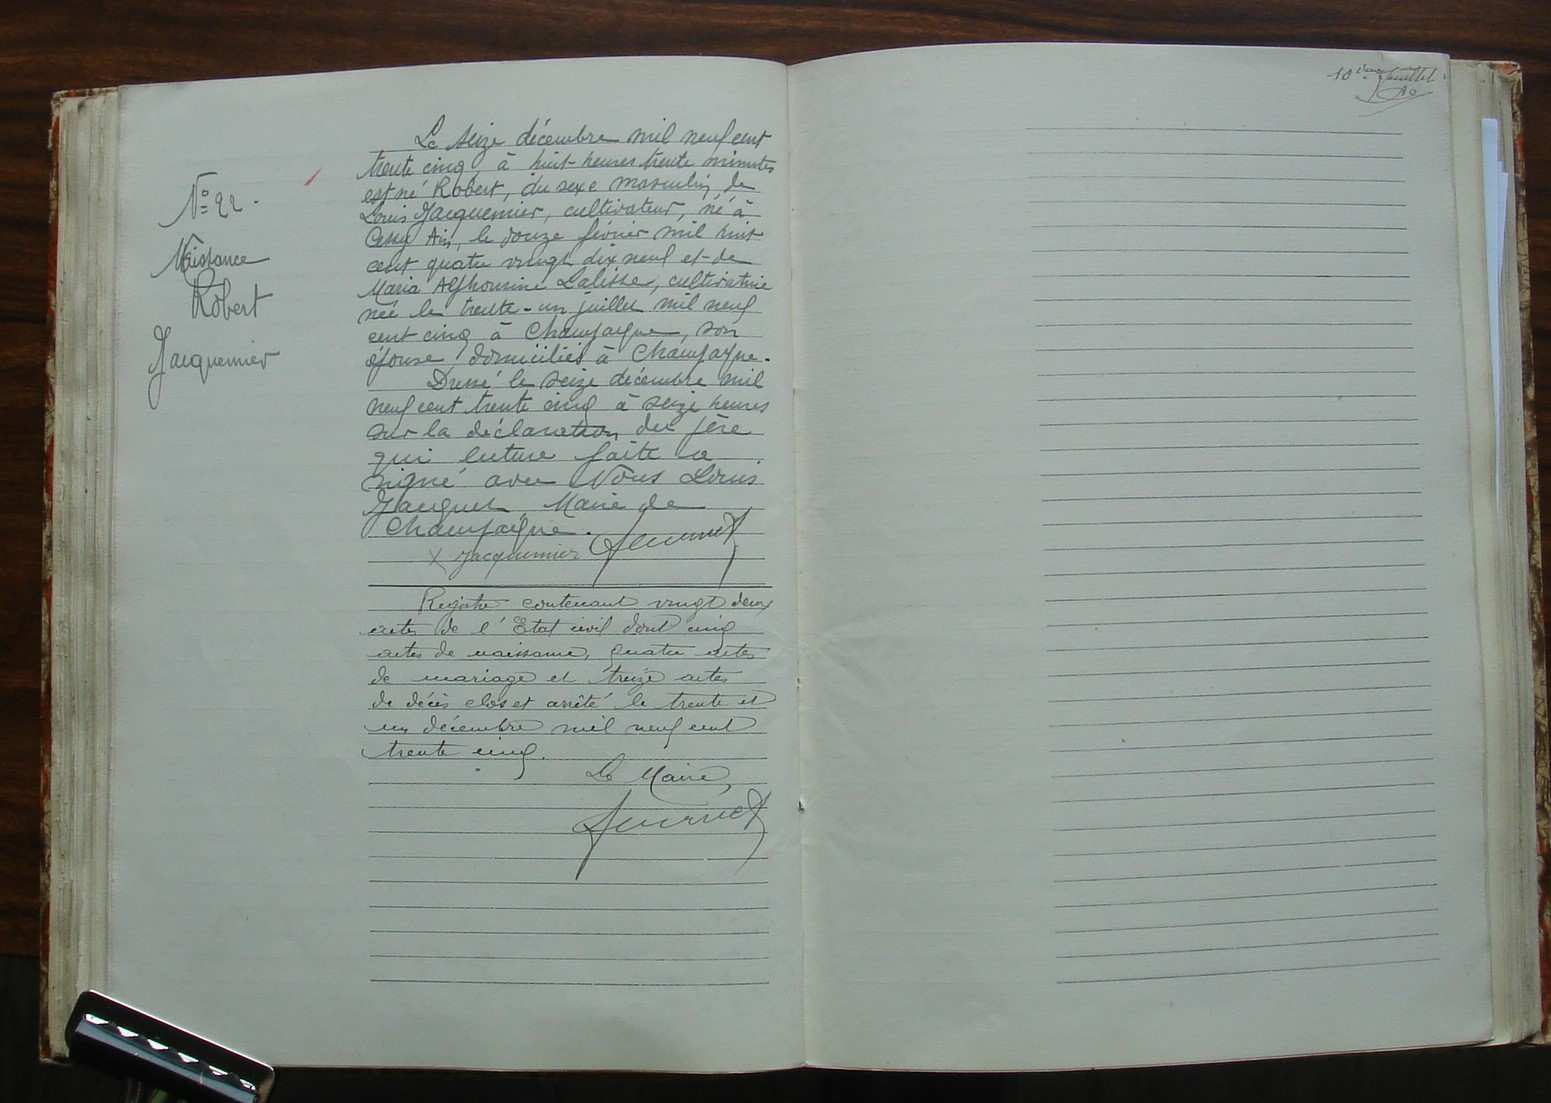 N° 22.
Naissance
Robert
Jacquemier
Le seize décembre mil neuf cent
trente cinq, à huit heures trente minutes
est né Robert, du sexe masculin, de
Louis Jacquemier, cultivateur, né à
Ain, le douze février mil huit
cent quatre vingt dix neuf et de
Maria Alphonsine cultivatrice
née le trente-un juillet mil neuf
cent cinq à Champagne, son
épouse, domiciliés à Champagne.
Dressé le seize décembre mil
neuf cent trente cinq à seize heures
sur la déclaration du père
qui lecture faite a
signé avec Nous Louis
Maire de
Champagne.
X Jacquemier
Registre contenant vingt deux
actes de l'Etat civil dont cinq
actes de naissance, quatre actes
de mariage et treize actes
de décès clos et arrêté le trente et
un décembre mil neuf cent
trente cinq.
Le Maire,
10ème feuillet